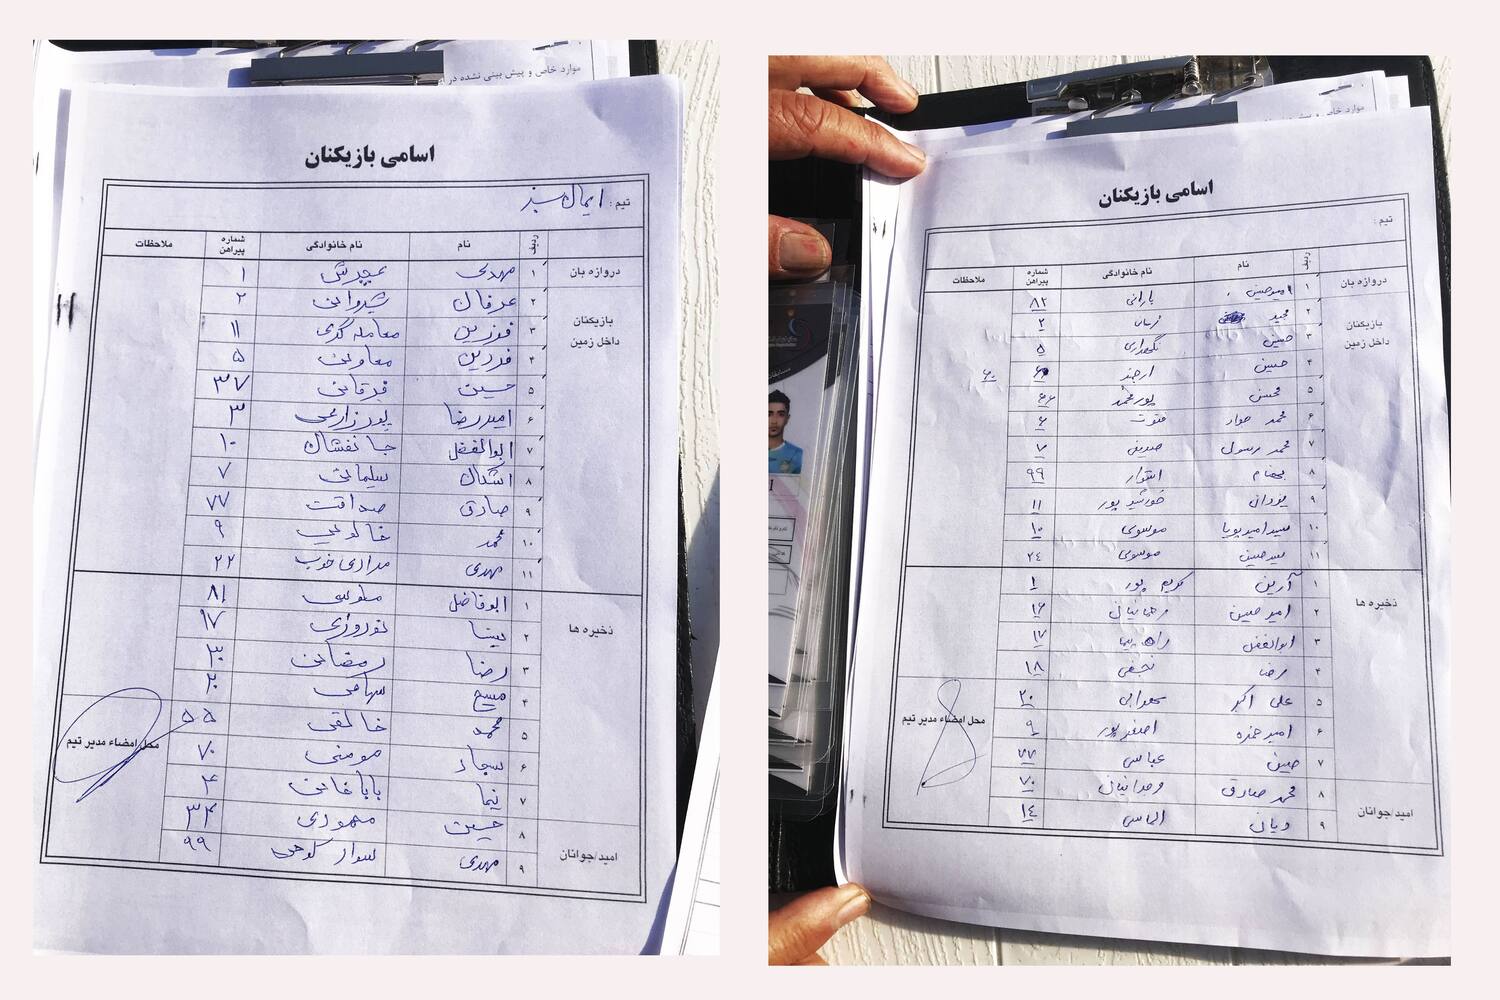 موارد خاص و پیش بینی نشده در
اسامی بازیکنان
تیم: ایمان سبز
ردیف نام نام خانوادگی شماره پیراهن ملاحظات
دروازه بان
۱ مهدی ۱
بازیکنان داخل زمین
۲ عرفان شیروانی ۲
۳ فرزین معامله گری ۱۱
۴ فردین معاونی ۵
۵ حسین فرقانی ۳۷
۶ امیررضا پورزارعی ۳
۷ ابوالفضل جانفشان ۱۰
۸ اشکان سلیمانی ۷
۹ صادق صداقت ۷۷
۱۰ محمد خالویی ۹
۱۱ مهدی مرادی خوب ۲۲
ذخیره ها
۱ ابوفاضل ۸۱
۲ نوروزی ۱۷
۳ رضا رمضانی ۳۰
۴ مسیح سهامی ۲۰
۵ محمد خالقی ۵۵
۶ سجاد مومنی ۷۰
۷ نیما باباخانی ۴
امید/جوانان
۸ حسین ۳۴
۹ مهدی سوار کوهی ۹۹
محل امضاء مدیر تیم
موارد خاص و پیش بینی نشده
اسامی بازیکنان
تیم:
ردیف نام نام خانوادگی شماره پیراهن ملاحظات
دروازه بان
۱ امیرحسین یارانی ۸۲
بازیکنان داخل زمین
۲ مجید ۲
۳ حسین نگهداری ۵
۴ حسین ارجند ۶۰
۵ محسن پورمحمد
۶ محمد جواد فتوت ۶
۷ محمد رسول صدیقی ۷
۸ بهنام استوار ۹۹
۹ یزدان خورشید پور ۱۱
۱۰ سیدامیرپویا موسوی ۱۰
۱۱ سیدحسین موسوی ۲۴
ذخیره ها
۱ آرین کریم پور ۱
۲ امیرحسین رحمانیانی ۱۶
۳ ابوالفضل راه پیما ۱۷
۴ رضا نجفی ۱۸
۵ علی اکبر ۲۰
۶ امیرحمزه اصغرپور ۹
۷ حسین عباسی ۷۷
امید/جوانان
۸ محمدصادق وجدانیانی ۷۰
۹ الماسی ۱۴
محل امضاء مدیر تیم